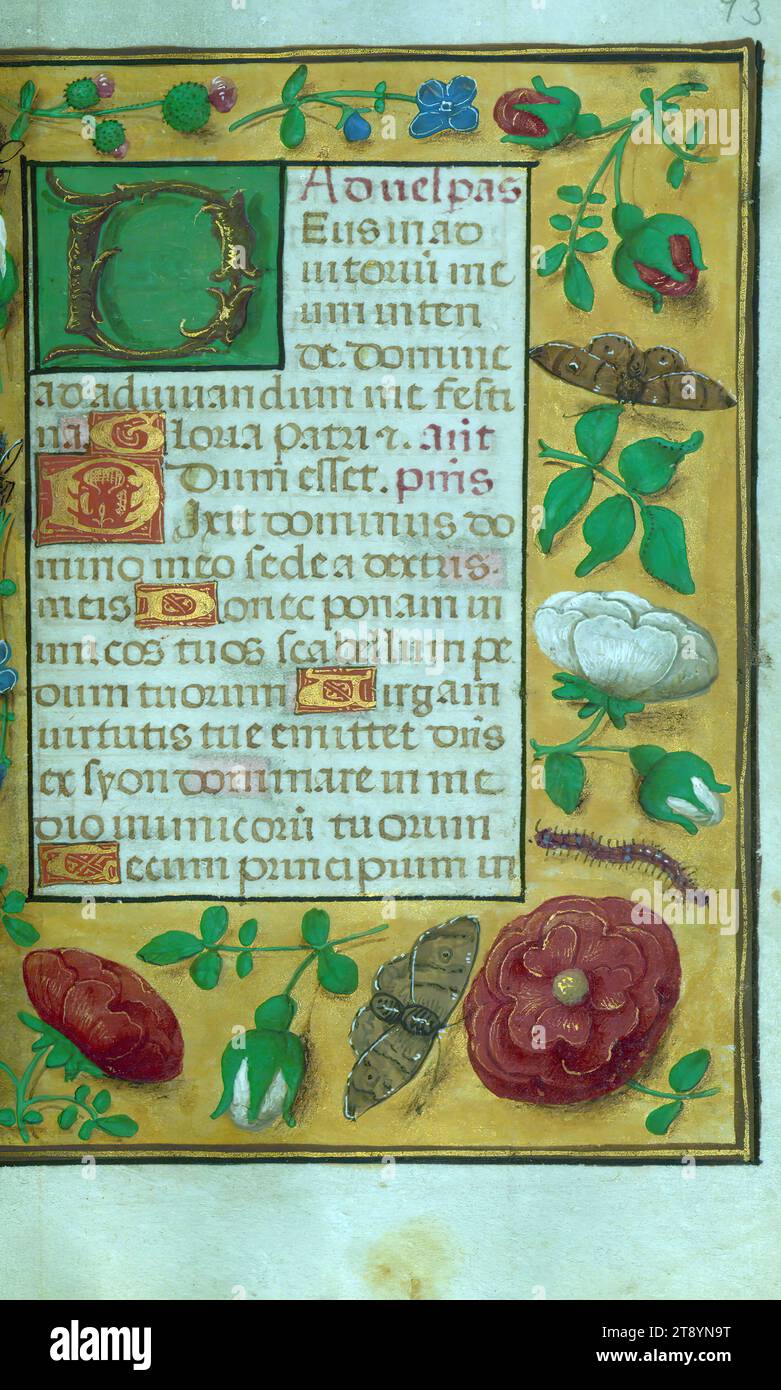 93
Ad vespas
Deus in ad
iutoriū me
um inten
de. domine
ad adiuuandum me festi
na. Gloria patri ⁊. añt
Dum esset. psūs
Dixit dominus do
mino meo sede a dextris
meis Donec ponam in
imicos tuos scabellum pe
dum tuorum Uirgam
uirtutis tue emittet dñs
ex syon dominare in me
dio inimicorū tuorum
Tecum principium in
alamy
Image ID: 2T8YN9T
www.alamy.com